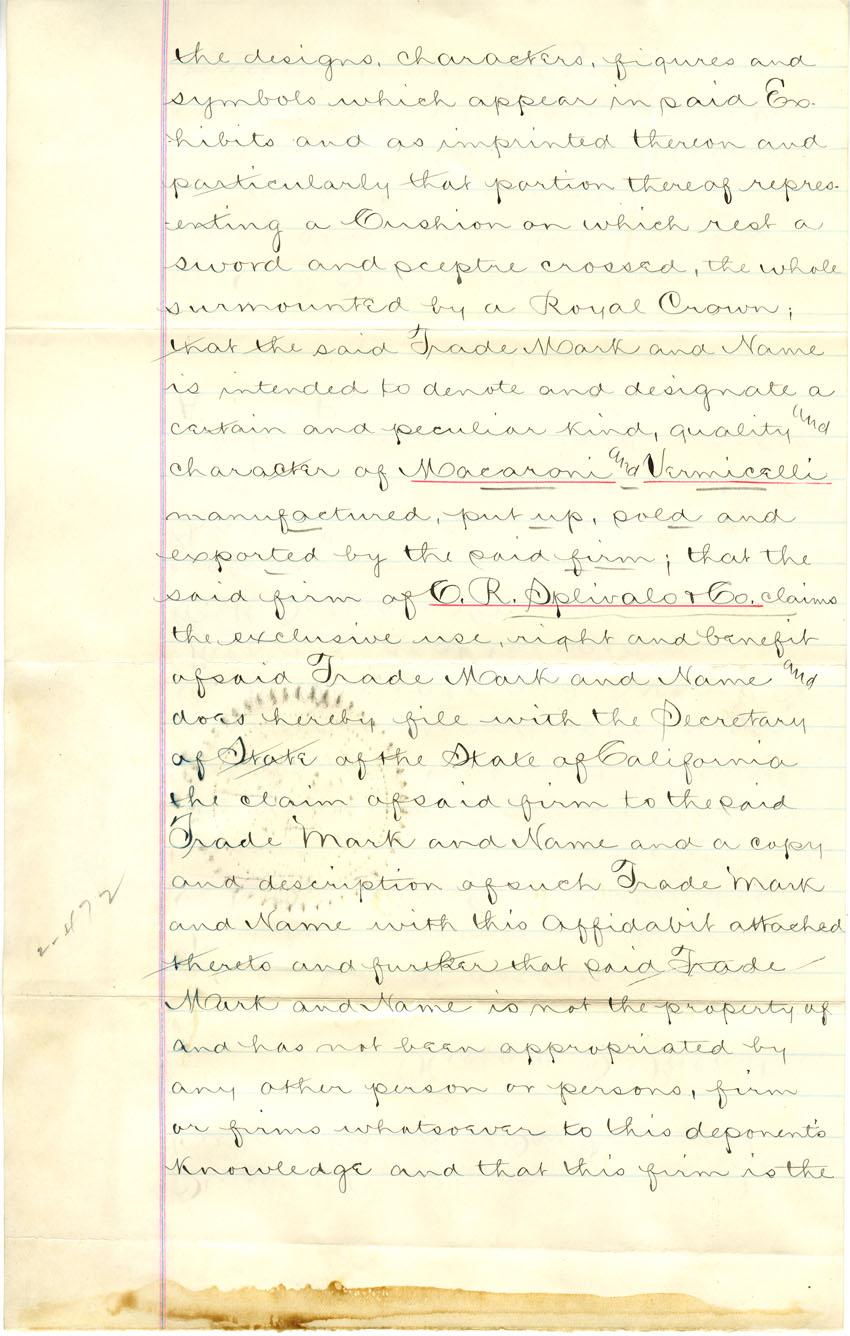 the designs, characters, figures and
symbols which appear in said Ex-
hibits and as imprinted thereon and
particularly that portion thereof repres-
enting a Cushion on which rest a
sword and sceptre crossed, the whole
surmounted by a Royal Crown;
that the said Trade Mark and Name
is intended to denote and designate a
certain and peculiar kind, quality and
character of Macaroni and Vermicelli
manufactured, put up, sold and
exported by the said firm; that the
said firm of C. R. Splivalo & Co. claims
the exclusive use, right and benefit
of said Trade Mark and Name and
does hereby file with the Secretary
of State of the State of California
the claim of said firm to the said
Trade Mark and Name and a copy
and description of such Trade Mark
and Name with this Affidabit attached
thereto and further that said Trade
Mark and Name is not the property of
and has not been appropriated by
any other person or persons, firm
or firms whatsoever to this deponent's
knowledge and that this firm is the
2-472